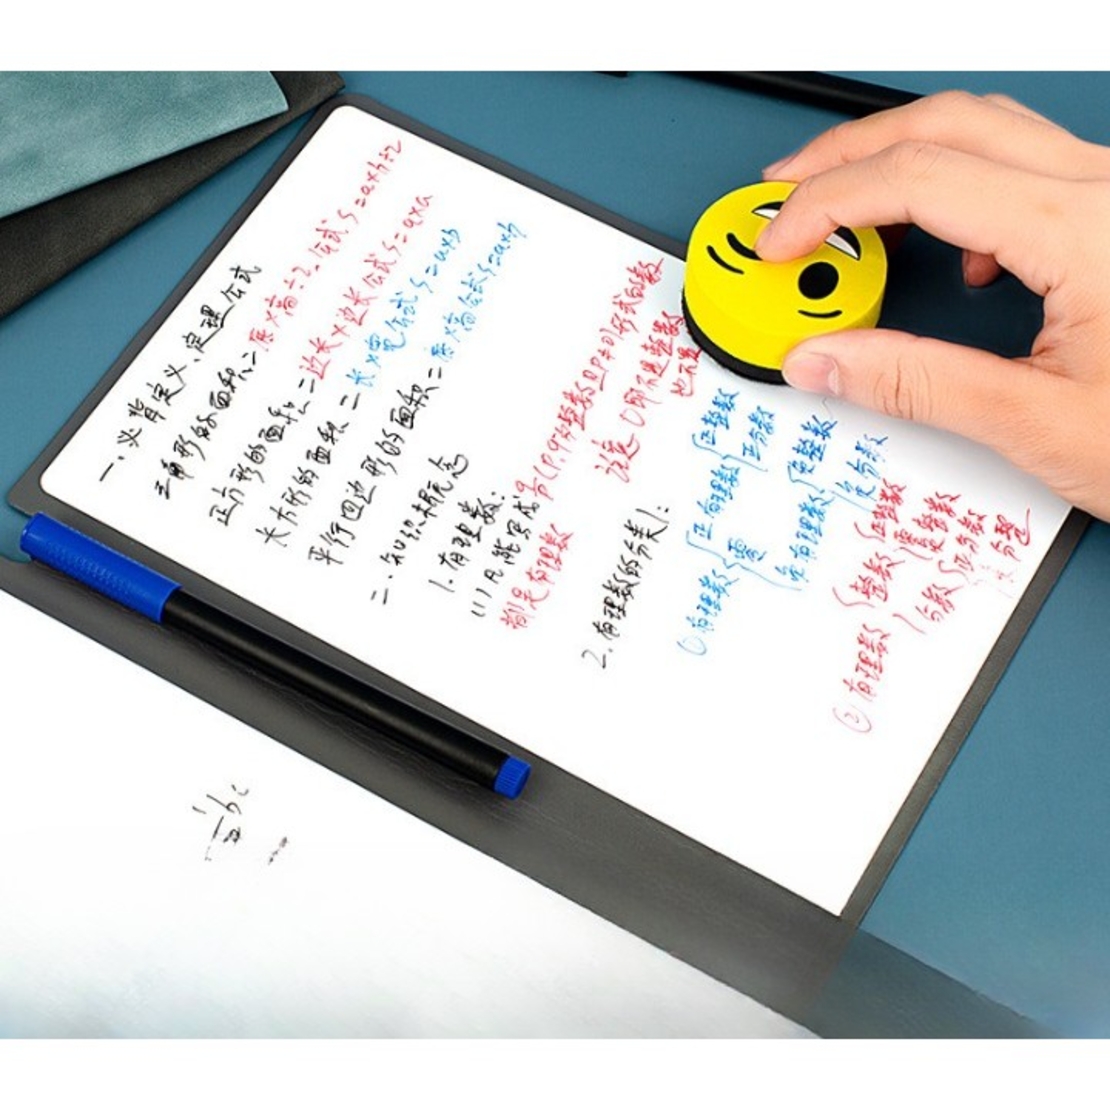 一.必背定义、定理公式
三角形的面积二底×高÷2.公式S=a×h÷2
正方形的面积二边长×边长公式S=a×a
长方形的面积二长×宽公式S=a×b
平行四边形的面积二底×高公式S=a×h
二.知识与概念
1.有理数:
(1)凡能写成 (P.9为整数且P≠0)形式的数
都是有理数
注意 0即不是整数
也不是
2.有理数的分类:
①有理数 正有理数 正整数
正分数
零
负有理数 负整数
负分数
②有理数 整数 正整数
零
负整数
分数 正分数